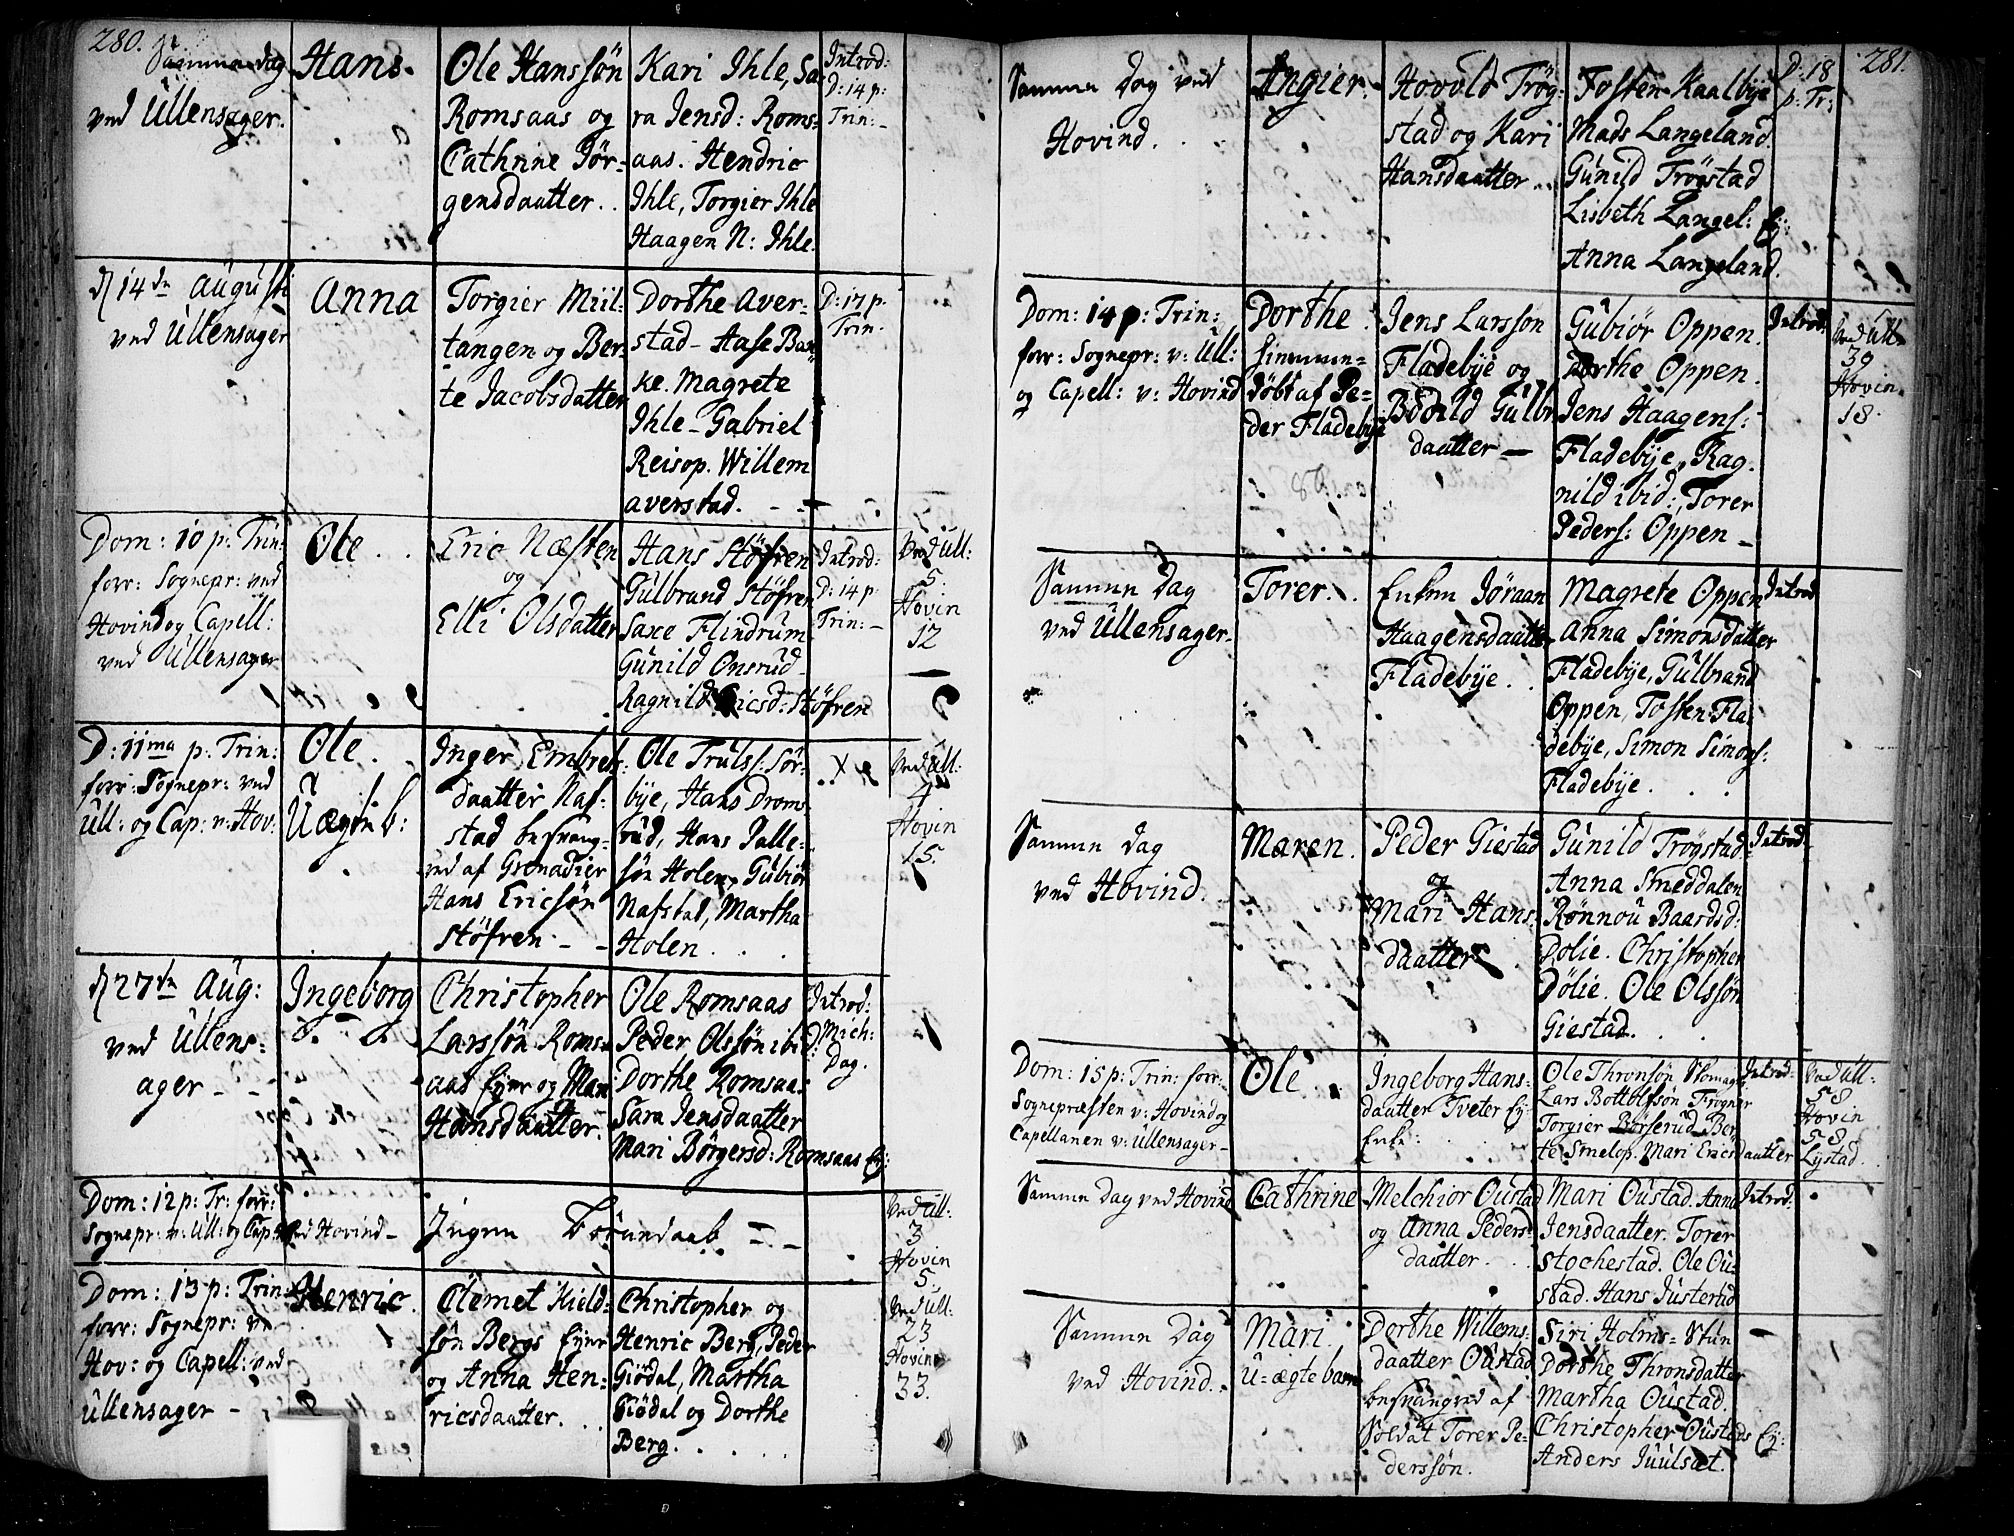 280.
Samme dag
ved Ullensager.
Hans.
Ole Hanssön
Romsaas og
Cathrine Jör-
gensdaatter.
Kari Ihle, Sa
ra Jensd: Roms-
aas. Hendric
Ihle, Torgier Ihle
Haagen N: Ihle.
Introd:
D: 14 p:
Trin: -
d 14de Augusti
ved Ullensager
Anna
Torgier Miil-
tangen og Ber-
te Jacobsdatter
Dorthe Aver-
stad - Aase Bac
ke. Magrete
Ihle - Gabriel
Reisop. Willem
Averstad. -
D: 17 p.
Trin.
Dom: 10 p: Trin:
forr: Sognepr: ved
Hovind og Capell:
ved Ullensager
Ole.
Eric Næsten
og
Elli Olsdatter
Hans Stöfren
Gulbrand Stöfren
Saxe Flindrum
Gunild Onsrud
Ragnild Ericsd: Stöfren
Introd:
D: 14 p.
Trin: -
Ved Ull:
5.
Hovin
12
D: 11ma p: Trin:
forr: Sognepr: ved
Ull: og Cap: v: Hov:
Ole.
Uægte b:
Inger Embrets:
daatter Naf-
stad besvang-
red af Grenadier
Hans Ericsön
Stöfren -
Ole Truls: Sör-
bye, Hans Drom
rud, Hans Palle-
sön Holen, Gubiör
Nafstad, Martha
Holen.
Ved Ull:
4
Hovin
15.
d 27de Aug:
ved Ullens-
ager -
Ingeborg
Christopher
Larssön Roms-
aas Ejer og Mari
Hansdaatter.
Ole Romsaas
Peder Olssön ibid
Dorthe Romsaas
Sara Jensdaatter
Mari Börgersd: Romsaas Ej:
Introd:
Mich:
Dag.
Dom: 12 p: Tr: forr:
Sognepr: v: Ull: og Cap: ved Hovind -
Ingen Börndaab -
Ved Ull:
3
Hovin
5.
Dom: 13 p: Trin:
forr: Sognepr: ve
Hov: og Capell: ved
Ullensager -
Henric.
Clemet Kield-
sön Bergs Ejer
og Anna Hen-
ricsdaatter.
Christopher og
Henric Berg, Peder
Giödal, Martha
Giödal og Dorthe
Berg.
Ved Ull:
23
Hovin
33.
281.
Samme Dag ved
Hovind.
Angier.
Hovold Trög-
stad og Kari
Hansdaatter.
Tosten Kaalbye
Mads Langeland.
Gunild Trögstad
Lisbeth Langel: Ej:
Anna Langeland.
D: 18
p: Tr:
Dom: 14 p: Trin:
forr: Sognepr: v: Ull:
og Capell: v: Hovind
Dorthe.
hiemme-
döbt af Pe-
der Fladebye
Jens Larsson
Fladebye og
Bodild Gulbr
daatter -
Gubiör Oppen.
Dorthe Oppen.
Jens Haagens:
Fladebye, Rag-
nild ibid: Torer
Peders: Oppen -
Introd:
Ved Ull:
39
Hovin
18.
Samme Dag
ved Ullensager.
Torer.
Enken Jöraan
Haagensdaatter
Fladebye.
Magrete Oppen
Anna Simonsdatter
Fladebye, Gulbrand
Oppen, Tosten Fla
debye, Simon Simons:
Fladebye.
Introd
Samme Dag
ved Hovind.
Maren.
Peder Giestad
og
Mari Hans
daatter.
Gunild Trögstad
Anna Smeddalen
Rönnou Baardsd:
Dölie. Christopher
Dölie. Ole Olssön
Giestad.
Introd.
Dom: 15 p: Trin: forr:
Sognepræsten v: Hovind og
Capellanen v: Ullensager -
Ole.
Ingeborg Hans-
daatter Tveter Ej-
Enke:
Ole Thronsön Skomager
Lars Bottolfsön Trögner
Torgier Börserud Ber
te Smelop. Mari Ericsdaatter
Introd:
Ved Ull:
58
Hovin
58
Lystad.
Samme Dag ved Hovind
Cathrine
Melchior Oustad
og Anna Peders-
daatter.
Mari Oustad. Anna
Jensdaatter. Torer
Stochestad. Ole Ou-
stad. Hans Justerud
Introd:
Samme Dag
ved Hovind.
Mari.
U-ægte barn
Dorthe Willems-
daatter Oustad
besvangred af
Soldat Torer Pe-
derssön.
Siri Holms-Stun
Dorthe Thronsdatter
Martha Oustad.
Christopher Oustads Ej:
Anders Juulsæt.